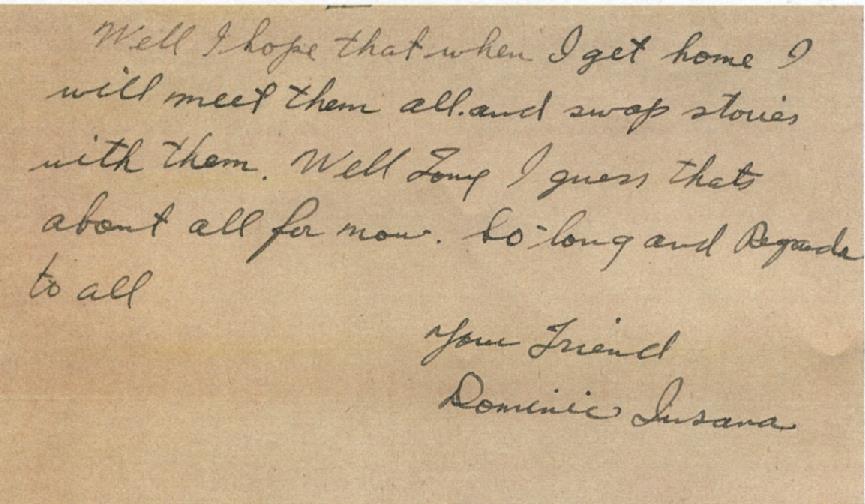 Well I hope that when I get home I
will meet them all. and swap stories
with them. Well Tony I guess thats
about all for now. So-long and Regards
to all
Your Friend
Dominic Insana